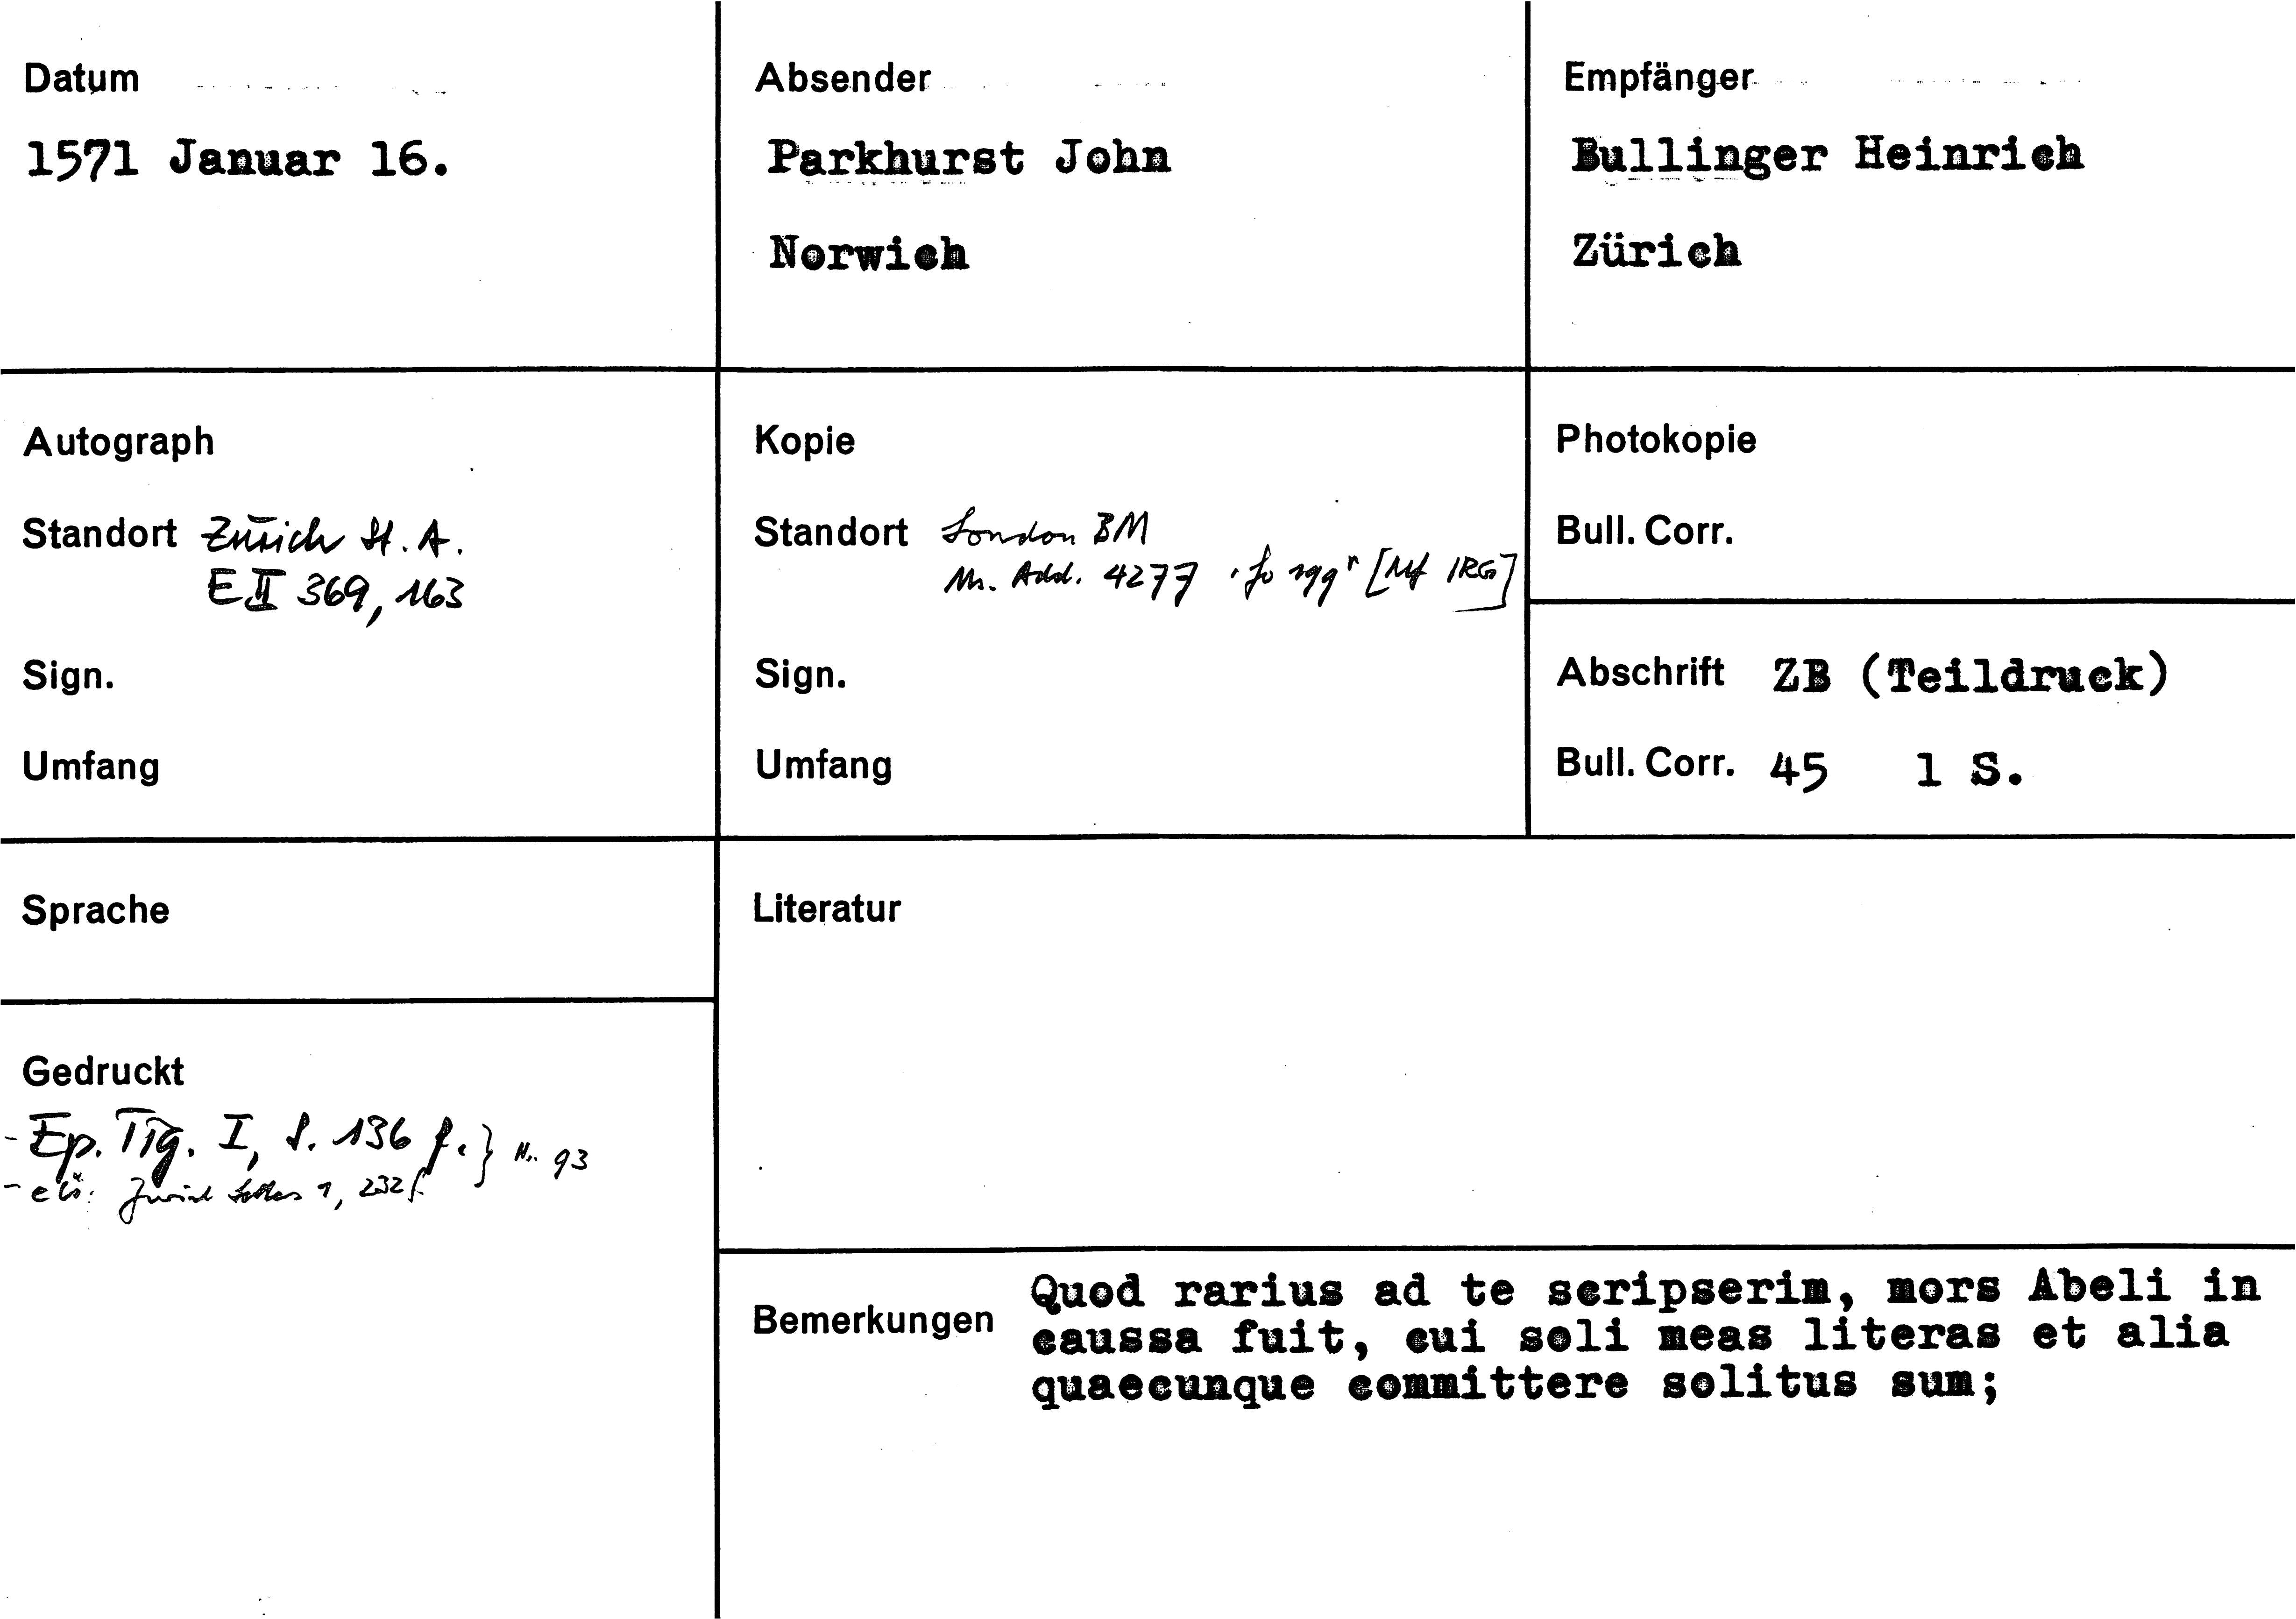 Datum
1571 Januar 16.
Absender
Parkhurst John
Norwich
Empfänger
Bullinger Heinrich
Zürich
Autograph
Standort Zürich St. A.
E II 369, 163
Sign.
Umfang
Kopie
Standort London BM
Ms. Add. 4277 fo 199r [Mf IRG]
Sign.
Umfang
Photokopie
Bull. Corr.
Abschrift ZB (Teildruck)
Bull. Corr. 45 1 S.
Sprache
Gedruckt
- Ep. Tig. I, S. 136 f. } Nr. 93
- Zurich Letters 1, 232 f.
Literatur
Bemerkungen
Quod rarius ad te scripserim, mors Abeli in
caussa fuit, cui soli meas literas et alia
quaecunque committere solitus sum;